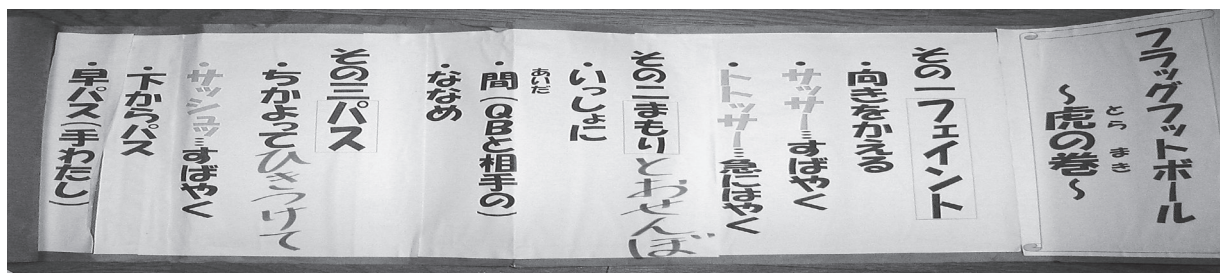 フラッグフットボール
～虎の巻～
とら まき
その一フェイント
・向きをかえる
・サッサー…すばやく
・トトッサー…急にはやく
その二まもり とおせんぼ
・いっしょに
・間（QBと相手の）
あいだ
・ななめ
その三パス
・ちかよって ひきつけて
・サッシュッ…すばやく
・下からパス
・早パス（手わたし）